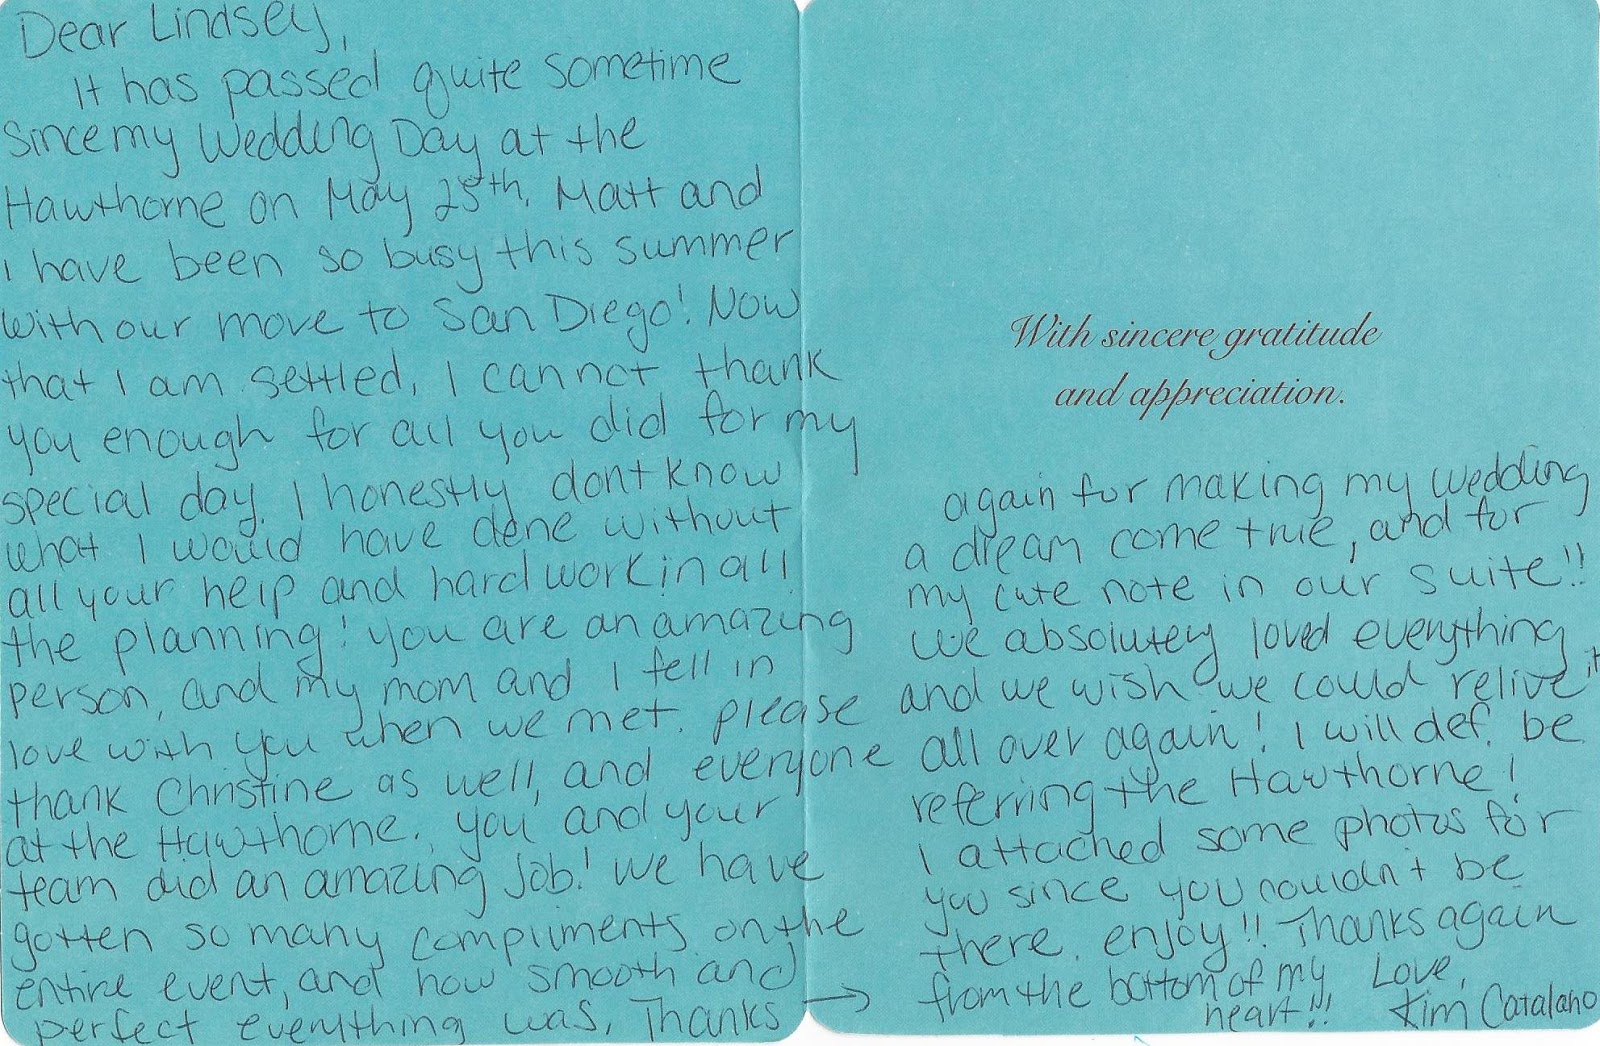 Dear Lindsey,
It has passed quite sometime
since my Wedding Day at the
Hawthorne on May 25th. Matt and
I have been so busy this summer
with our move to San Diego! Now
that I am settled, I cannot thank
you enough for all you did for my
special day. I honestly dont know
what I would have done without
all your help and hard work in all
the planning! You are an amazing
person, and my mom and I fell in
love with you when we met. please
thank Christine as well, and everyone
at the Hawthorne. You and your
team did an amazing job! We have
gotten so many compliments on the
entire event, and how smooth and
perfect everything was. Thanks →
With sincere gratitude
and appreciation.
again for making my wedding
a dream come true, and for
my cute note in our suite!!
We absolutely loved everything
and we wish we could relive it
all over again! I will def. be
referring the Hawthorne!
I attached some photos for
you since you couldn't be
there. enjoy!! Thanks again
from the bottom of my
heart!!
Love,
Kim Catalano